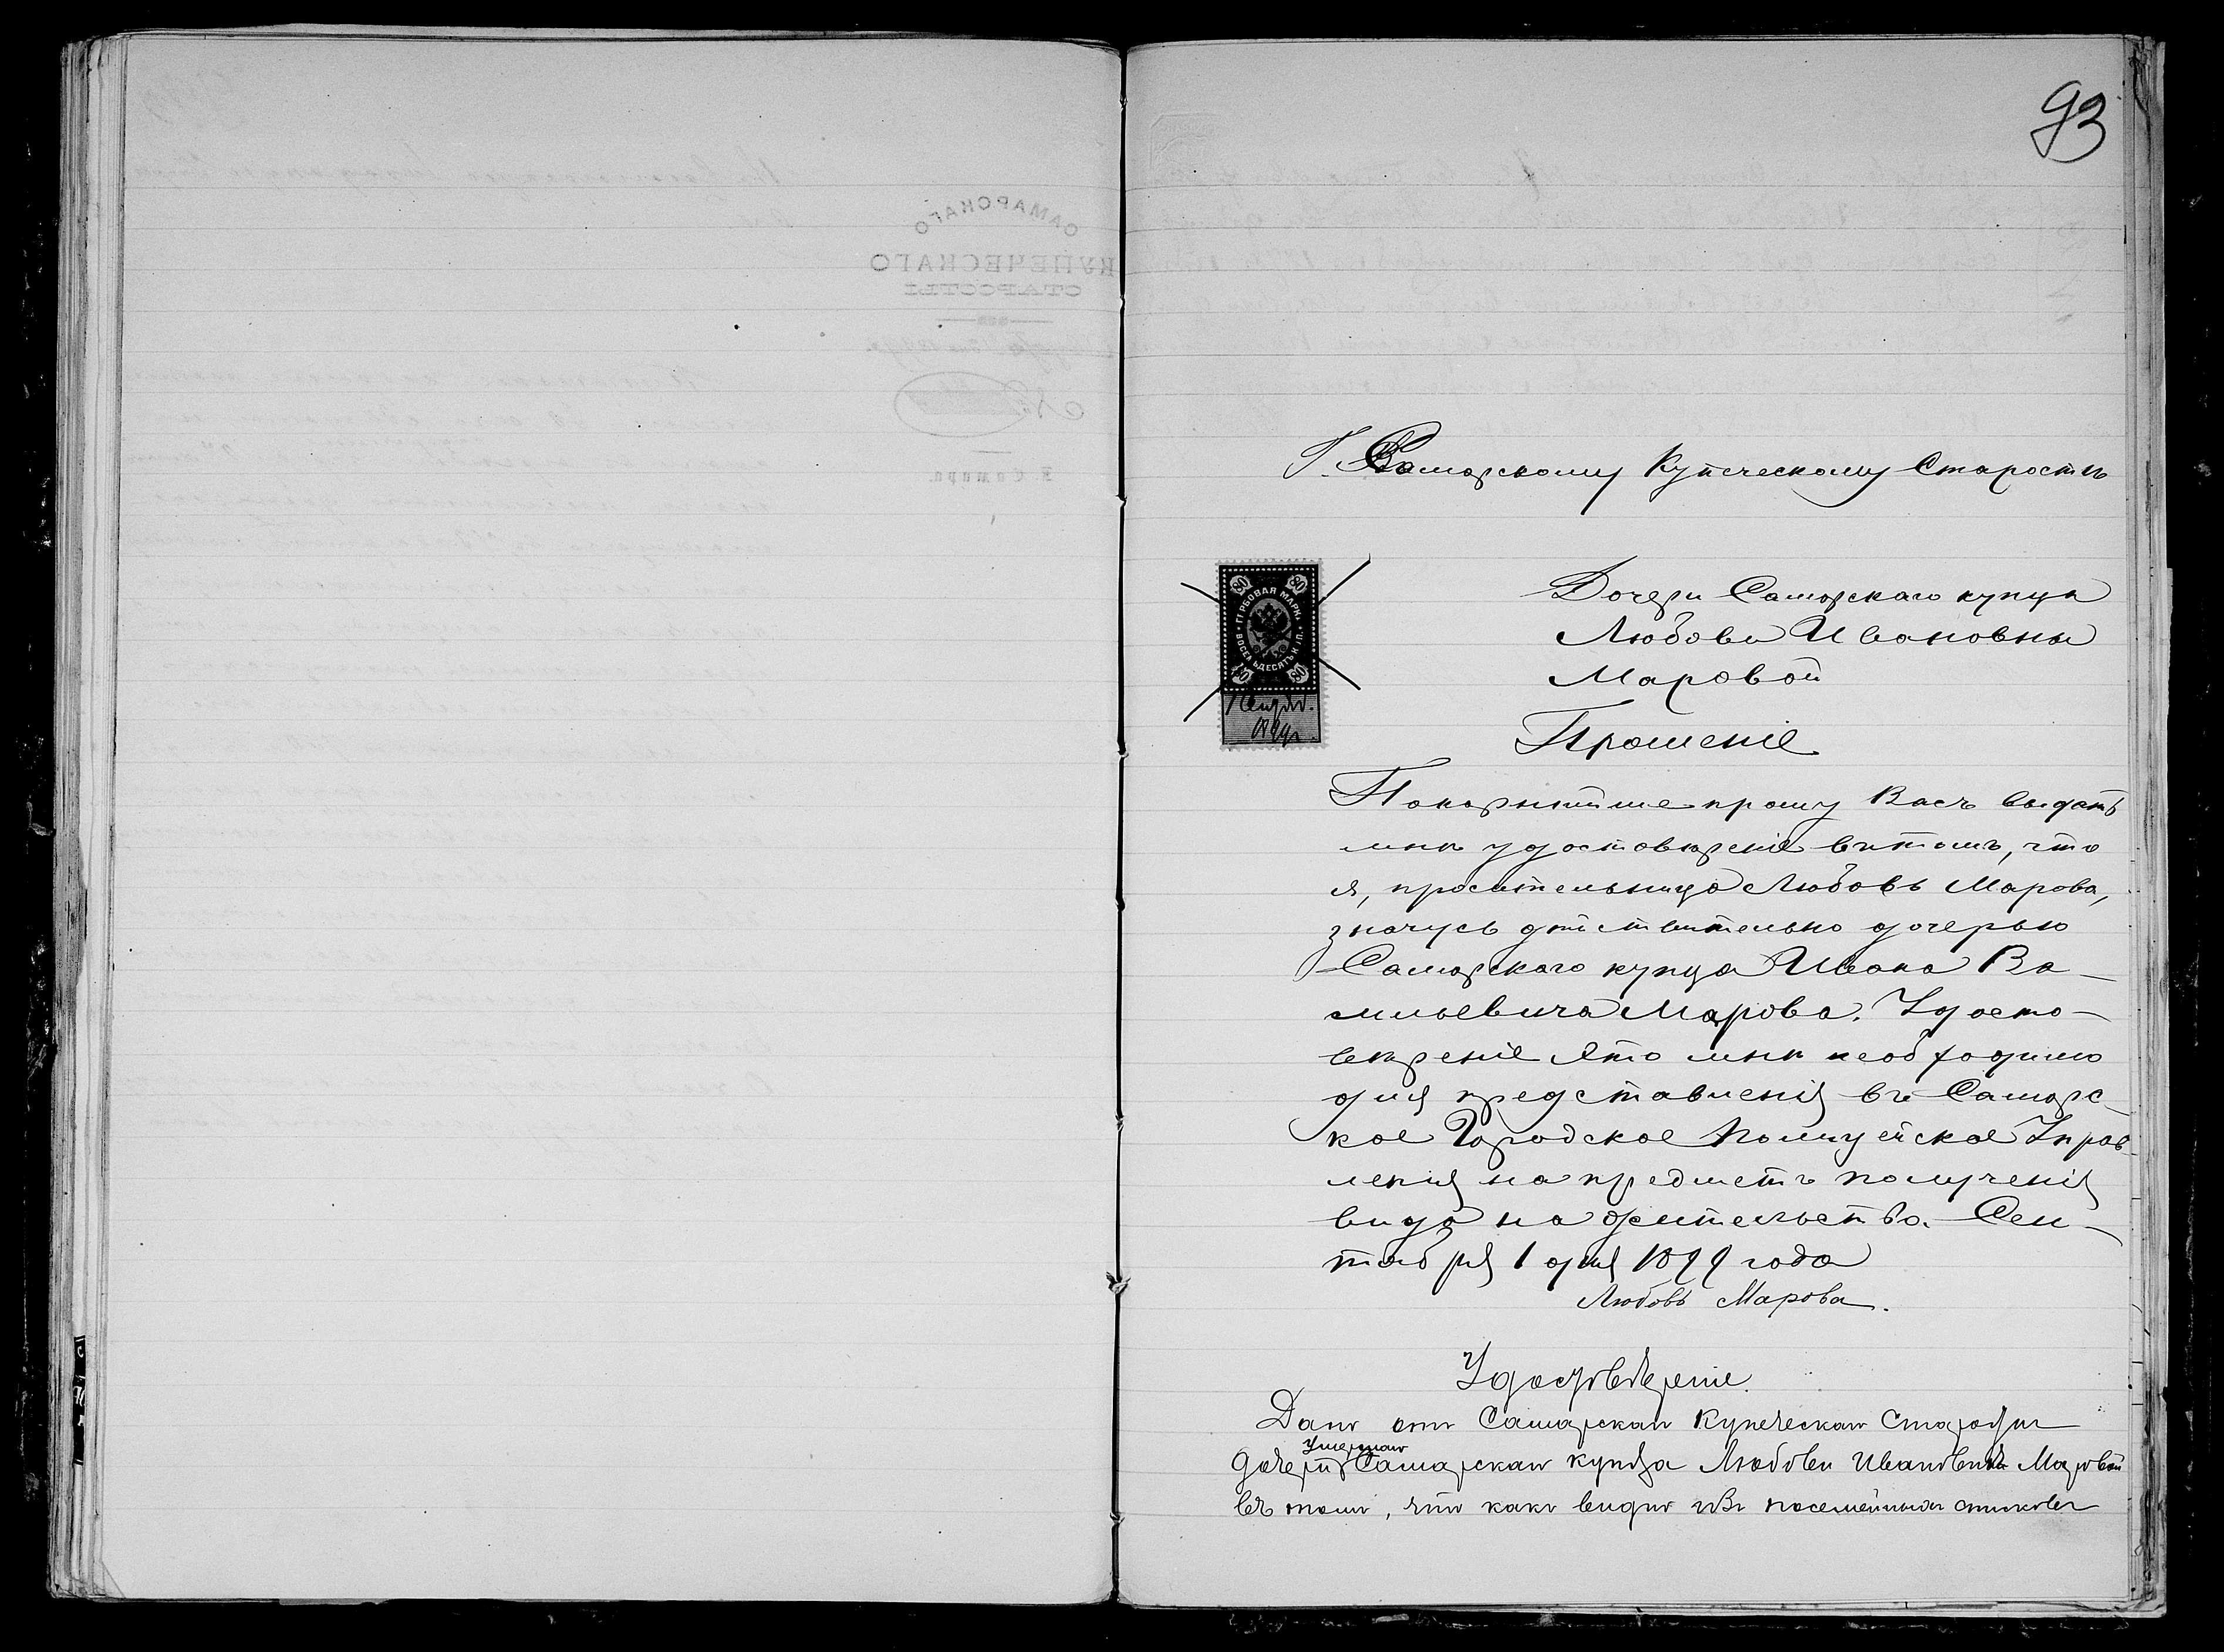 93
Г. Самарскому Купеческому Старостѣ
Дочери Самарскаго купца
Любови Ивановны
Маровой
Прошеніе
80 80
ГЕРБОВАЯ МАРКА
ВОСЕМЬДЕСЯТЪ КОП.
80 80
1 Сентяб.
1899 г.
Покорнѣйше прошу Васъ выдать
мнѣ удостовѣреніе въ томъ, что
я, просительница Любовь Марова,
значусь дѣйствительно дочерью
Самарскаго купца Ивана Ва-
сильевича Марова. Удосто-
вѣреніе это мнѣ необходимо
для представленія въ Самарс-
кое Городское Полицейское Управ-
ленія на предметъ полученія
вида на жительство. Сен-
тября 1 дня 1899 года
Любовь Марова.
Удостовѣреніе.
Дано отъ Самарскаго Купеческаго Старосты
умершаго
дочери Самарскаго купца Любови Ивановнѣ Маровой
въ томъ, что какъ видно изъ посемейныхъ списковъ
САМАРСКАГО
КУПЕЧЕСКАГО
СТАРОСТЫ
№
Г. Самара.